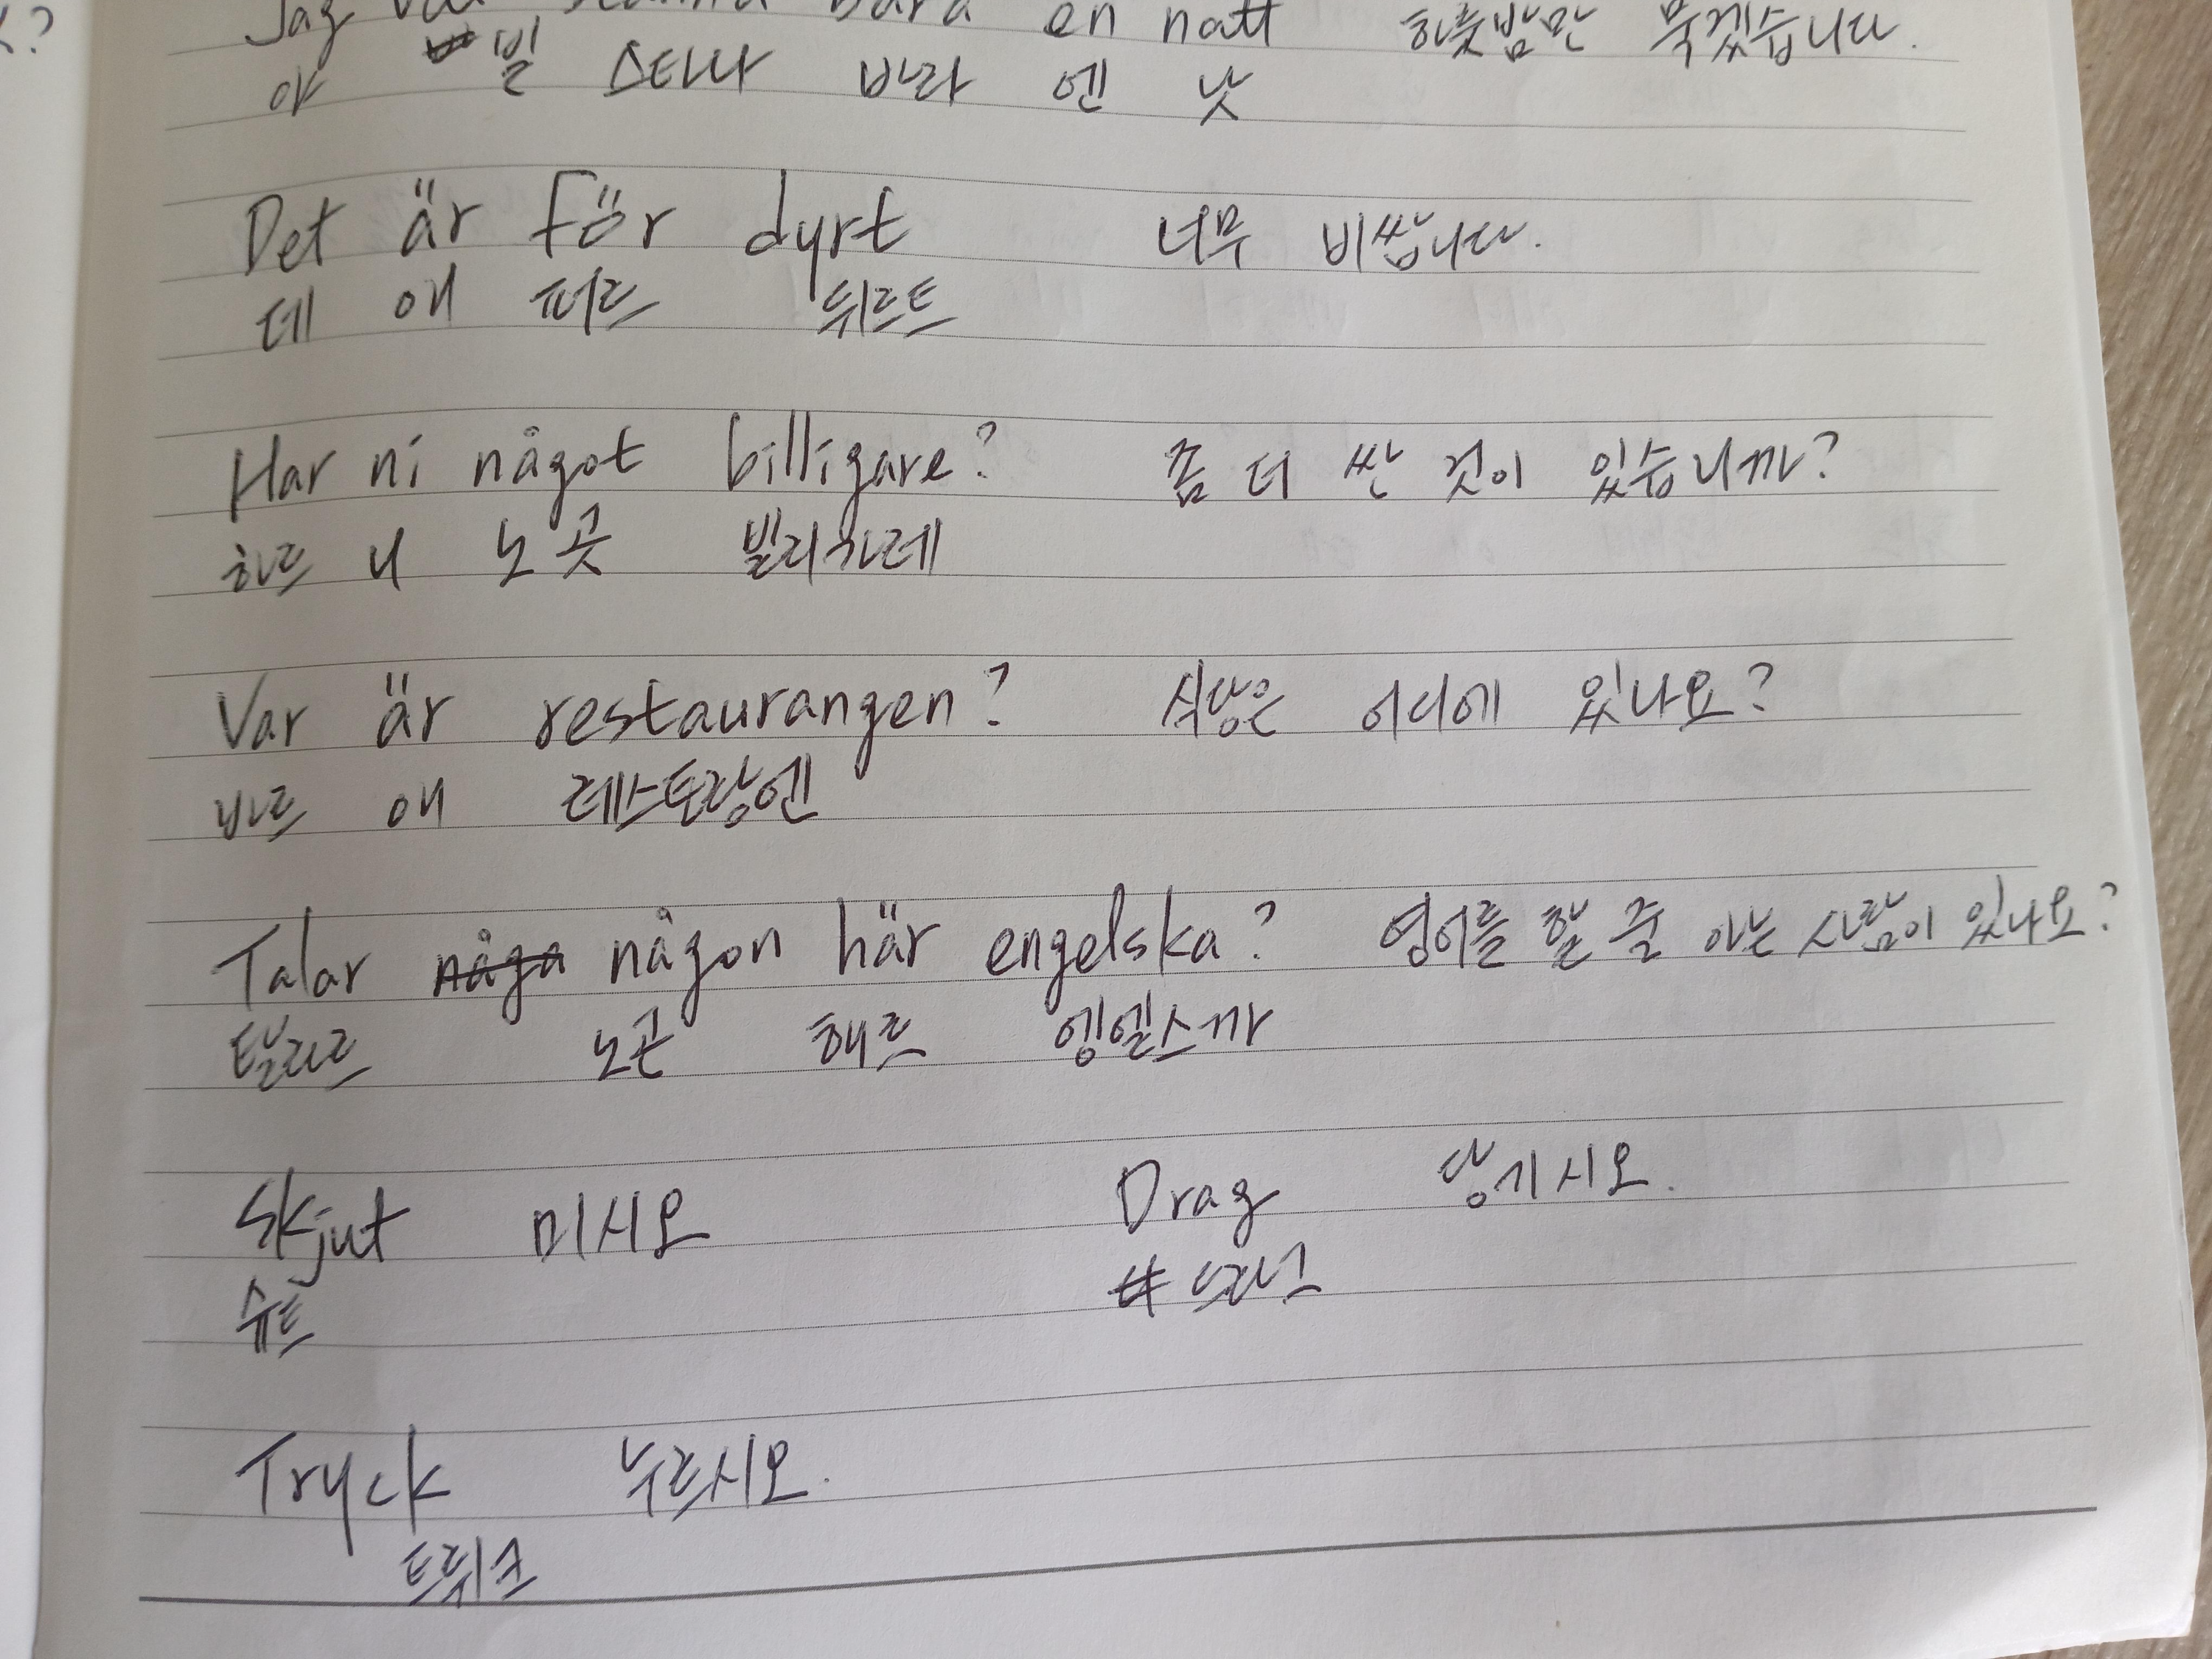 Jag vill stanna bara en natt 하룻밤만 묵겠습니다.
야 빌 스타나 바라 엔 낫
Det är för dyrt 너무 비쌉니다.
데 애 퍼르 뒤르트
Har ni något billigare? 좀 더 싼 것이 있습니까?
하르 니 노곳 빌리가레
Var är restaurangen? 식당은 어디에 있나요?
바르 애 레스토랑엔
Talar någa någon här engelska? 영어를 할 줄 아는 사람이 있나요?
탈라르 노곤 해르 엥엘스까
Skjut 미시오 Drag 당기시오.
슈트 드라그
Tryck 누르시오.
트뤼크